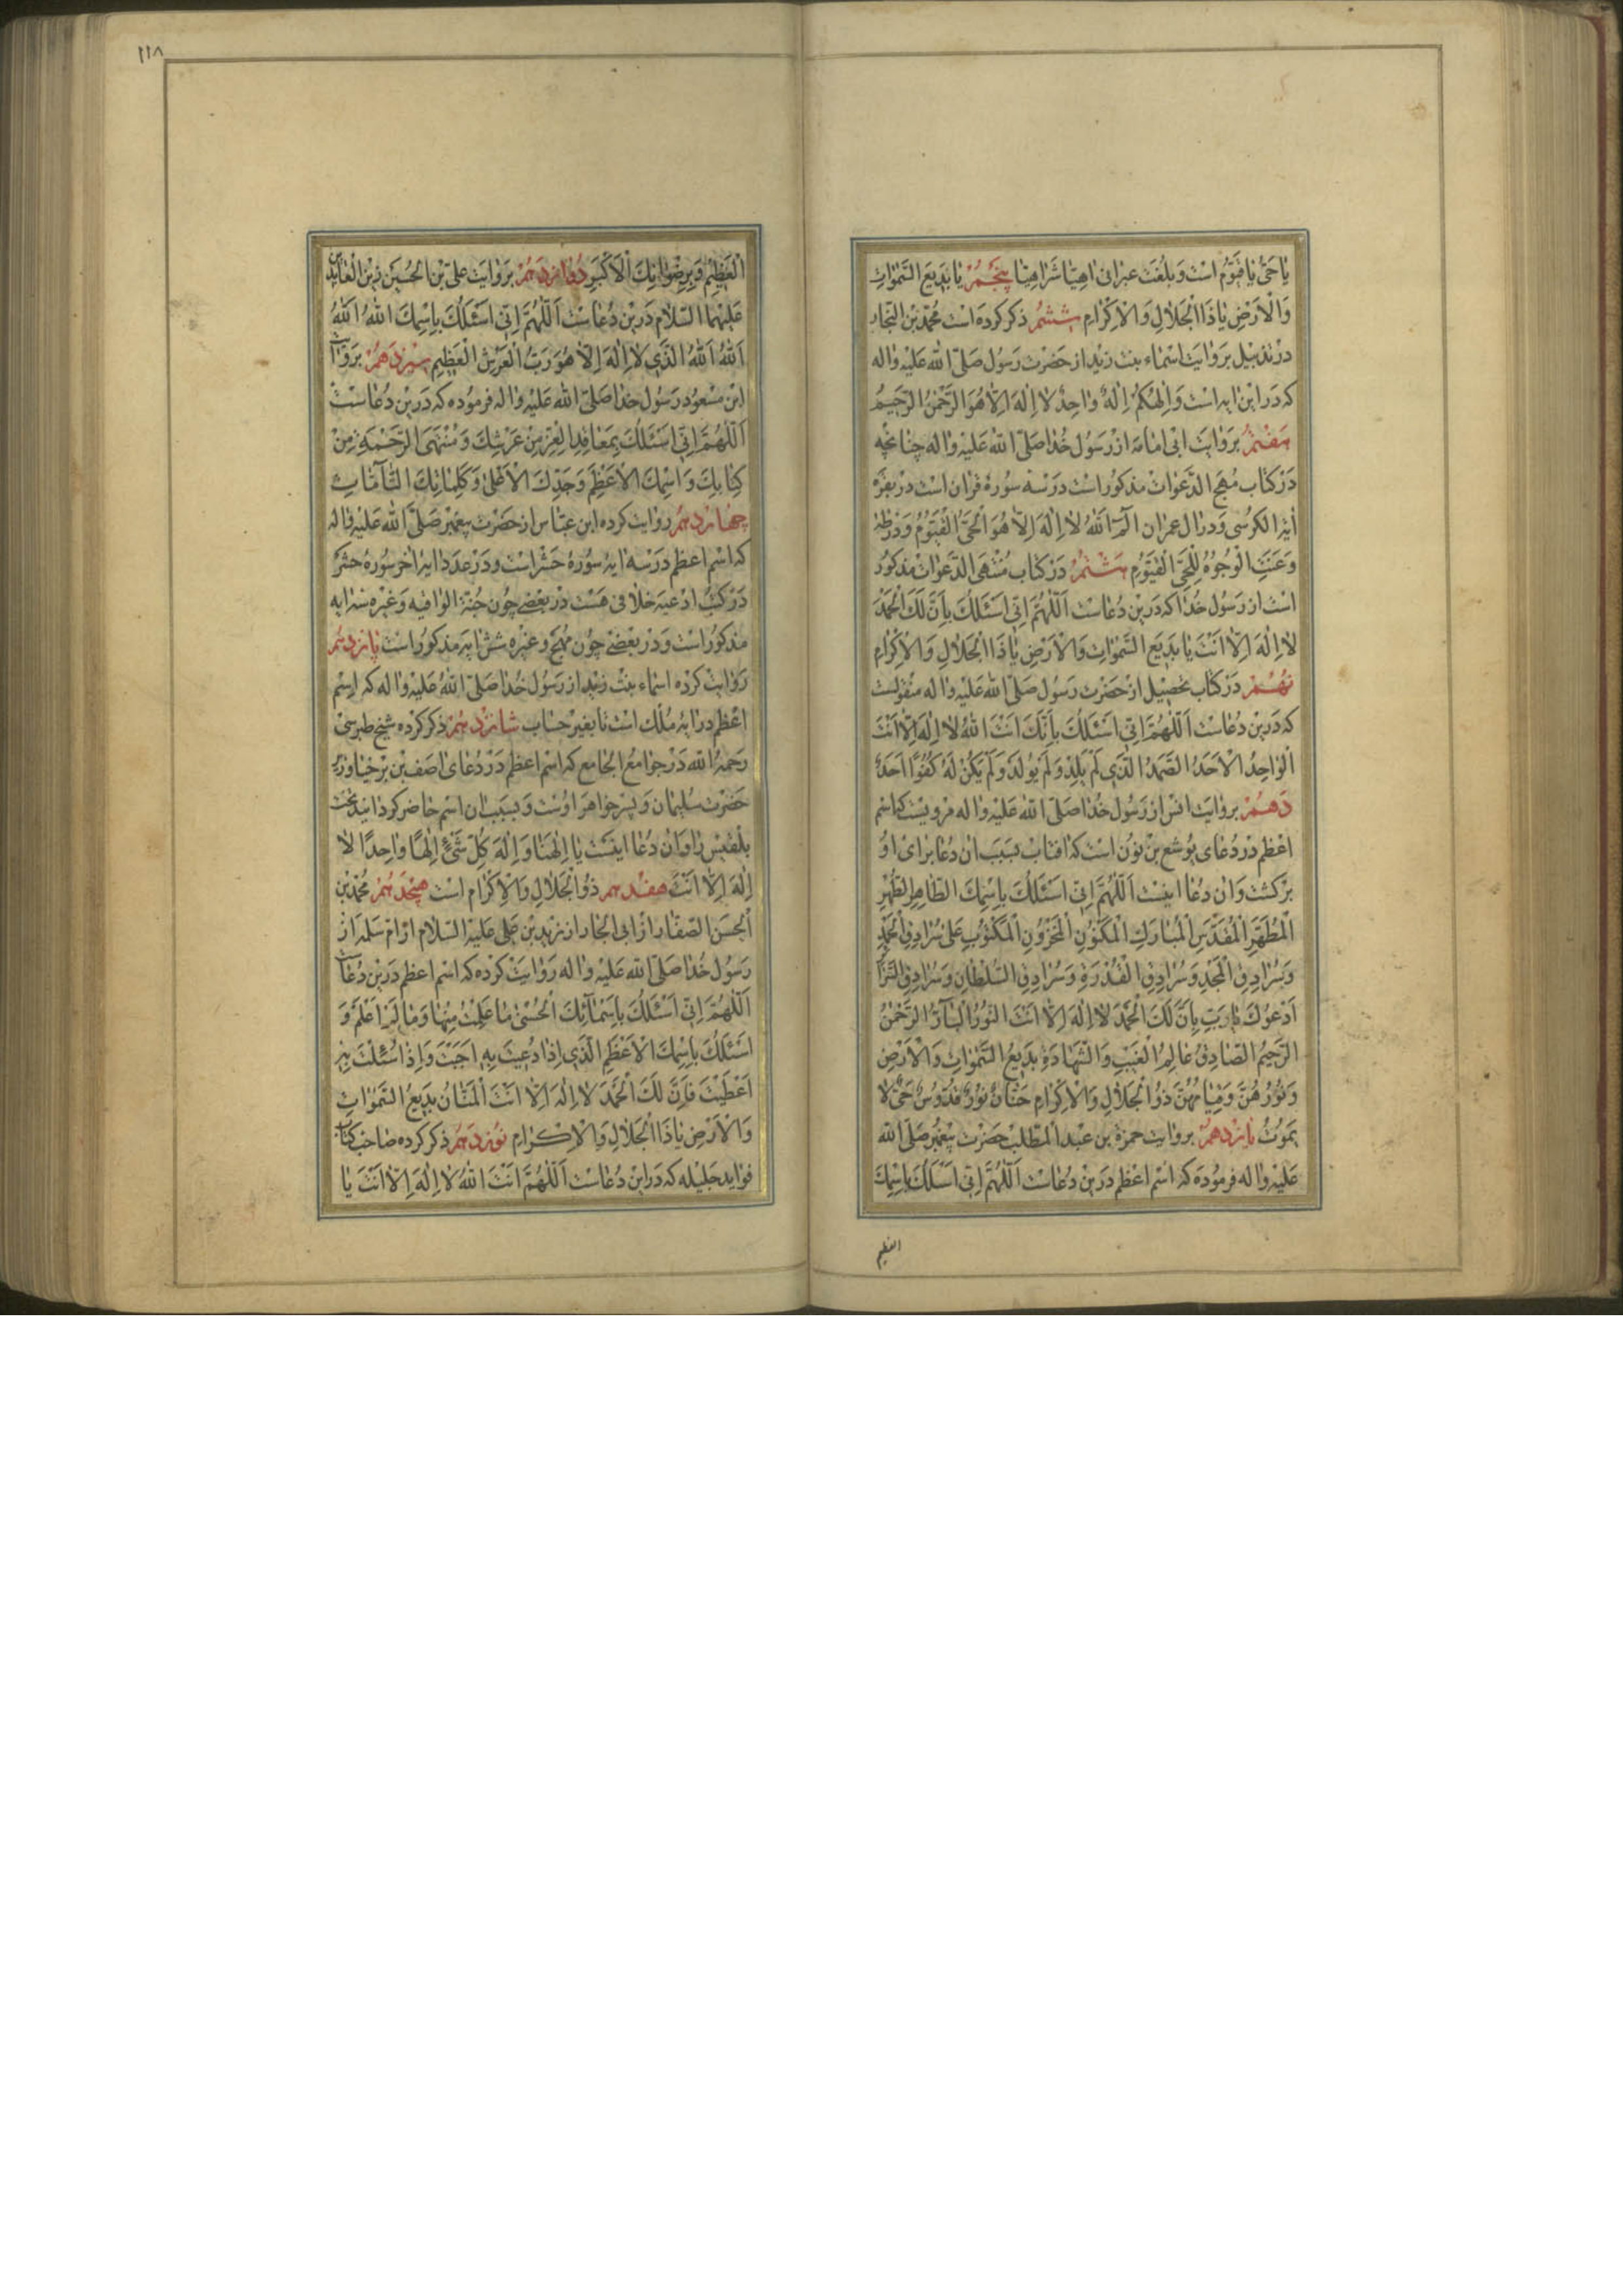 يا حَىُّ يا قَيّومُ است و بلغت عبرانى اهيّا شراهيّا پنجم يا بَديعَ السَّمٰواتِ
وَالْاَرْضِ يا ذَا الْجَلالِ وَالْاِكْرامِ ششم ذكر كرده است محمّد بن النجار
در تذييل بروايت اسماء بنت زيد از حضرت رسول صلّى الله عليه واله
كه در اين ايه است وَاِلٰهُكُمْ اِلٰهٌ واحِدٌ لا اِلٰهَ اِلّا هُوَ الرَّحْمٰنُ الرَّحيمُ
هفتم بروايت ابى امامه از رسول خدا صلّى الله عليه واله چنانچه
در كتاب مهج الدّعوات مذكور است در سه سورهٔ قران است در بقره
اية الكرسى و در ال عمران الٓمٓ اَللهُ لا اِلٰهَ اِلّا هُوَ الْحَىُّ الْقَيُّومُ و در طه
وَعَنَتِ الْوُجُوهُ لِلْحَىِّ الْقَيُّومِ هشتم در كتاب منتهى الدّعوات مذكور
است از رسول خدا كه درين دعاست اَللّٰهُمَّ اِنّى اَسْئَلُكَ بِاَنَّ لَكَ الْحَمْدَ
لا اِلٰهَ اِلّا اَنْتَ يا بَديعَ السَّمٰواتِ وَالْاَرْضِ يا ذَا الْجَلالِ وَالْاِكْرامِ
نهم در كتاب تحصيل از حضرت رسول صلّى الله عليه واله منقولست
كه درين دعاست اَللّٰهُمَّ اِنّى اَسْئَلُكَ بِاَنَّكَ اَنْتَ اللهُ لا اِلٰهَ اِلّا اَنْتَ
الْواحِدُ الْاَحَدُ الصَّمَدُ الَّذى لَمْ يَلِدْ وَلَمْ يُولَدْ وَلَمْ يَكُنْ لَهُ كُفُوًا اَحَدٌ
دهم بروايت انس از رسول خدا صلّى الله عليه واله مرويست كه اسم
اعظم در دعاى يوشع بن نون است كه افتاب بسبب ان دعا براى او
بركشت و ان دعا اينست اَللّٰهُمَّ اِنّى اَسْئَلُكَ بِاسْمِكَ الطّاهِرِ الطُّهْرِ
الْمُطَهَّرِ الْمُقَدَّسِ الْمُبارَكِ الْمَكْنُونِ الْمَخْزُونِ الْمَكْتُوبِ عَلى سُرادِقِ الْحَمْدِ
وَسُرادِقِ الْمَجْدِ وَسُرادِقِ الْقُدْرَةِ وَسُرادِقِ السُّلْطانِ وَسُرادِقِ
اَدْعُوكَ يا رَبِّ بِاَنَّ لَكَ الْحَمْدَ لا اِلٰهَ اِلّا اَنْتَ النُّورُ الْبارُّ الرَّحْمٰنُ
الرَّحيمُ الصّادِقُ عالِمُ الْغَيْبِ وَالشَّهادَةِ بَديعُ السَّمٰواتِ وَالْاَرْضِ
وَنُورُهُنَّ وَقِيامُهُنَّ ذُو الْجَلالِ وَالْاِكْرامِ حَنّانٌ نُورٌ قُدُّوسٌ حَىٌّ لا
يَمُوتُ يازدهم بروايت حمزة بن عبد المطّلب حضرت پيغمبر صلّى الله
عليه واله فرموده كه اسم اعظم درين دعاست اَللّٰهُمَّ اِنّى اَسْئَلُكَ بِاسْمِكَ
العظيم
١١٨
الْعَظيمِ وَبِرِضْوانِكَ الْاَكْبَرِ دوازدهم بروايت علىّ بن الحسين زين العابدين
عليهما السّلام درين دعاست اَللّٰهُمَّ اِنّى اَسْئَلُكَ بِاسْمِكَ اللهُ اَللهُ
اَللهُ اَللهُ الَّذى لا اِلٰهَ اِلّا هُوَ رَبُّ الْعَرْشِ الْعَظيمِ سيزدهم بروايت
ابن مسعود رسول خدا صلّى الله عليه واله فرموده كه درين دعاست
اَللّٰهُمَّ اِنّى اَسْئَلُكَ بِمَعاقِدِ الْعِزِّ مِنْ عَرْشِكَ وَمُنْتَهَى الرَّحْمَةِ مِنْ
كِتابِكَ وَاسْمِكَ الْاَعْظَمِ وَجَدِّكَ الْاَعْلى وَكَلِماتِكَ التّامّاتِ
چهاردهم روايت كرده ابن عبّاس از حضرت پيغمبر صلّى الله عليه واله
كه اسم اعظم در سه ايهٔ سورهٔ حشر است و در عدد ايهٔ اخر سورهٔ حشر كه
در كتب ادعيه خلافى هست در بعضى چون جنّة الواقيه و غيره سه ايه
مذكور است و در بعضى چون مهج و غيره شش ايه مذكور است پانزدهم
روايت كرده اسماء بنت زيد از رسول خدا صلّى الله عليه واله كه اسم
اعظم در ايهٔ ملك است تا بغير حساب شانزدهم ذكر كرده شيخ طبرسى
رحمه الله در جوامع الجامع كه اسم اعظم در دعاى اصف بن برخيا وزير
حضرت سليمان و پسر خواهر اوست و بسبب ان اسم حاضر كردانيد تخت
بلقيس را و ان دعا اينست يا اِلٰهَنا وَاِلٰهَ كُلِّ شَىْءٍ اِلٰهًا واحِدًا لا
اِلٰهَ اِلّا اَنْتَ هفدهم ذُو الْجَلالِ وَالْاِكْرامِ است هيجدهم محمّد بن
الحسن الصفّار از ابى الجار از زيد بن على عليه السّلام از ام سلمه از
رسول خدا صلّى الله عليه واله روايت كرده كه اسم اعظم درين دعاست
اَللّٰهُمَّ اِنّى اَسْئَلُكَ بِاَسْمائِكَ الْحُسْنى ما عَلِمْتُ مِنْها وَما لَمْ اَعْلَمْ وَ
اَسْئَلُكَ بِاسْمِكَ الْاَعْظَمِ الَّذى اِذا دُعيتَ بِهِ اَجَبْتَ وَاِذا سُئِلْتَ بِهِ
اَعْطَيْتَ فَاِنَّ لَكَ الْحَمْدَ لا اِلٰهَ اِلّا اَنْتَ الْمَنّانُ بَديعُ السَّمٰواتِ
وَالْاَرْضِ يا ذَا الْجَلالِ وَالْاِكْرامِ نوزدهم ذكر كرده صاحب كتاب
فوايد جليله كه در اين دعاست اَللّٰهُمَّ اَنْتَ اللهُ لا اِلٰهَ اِلّا اَنْتَ يا